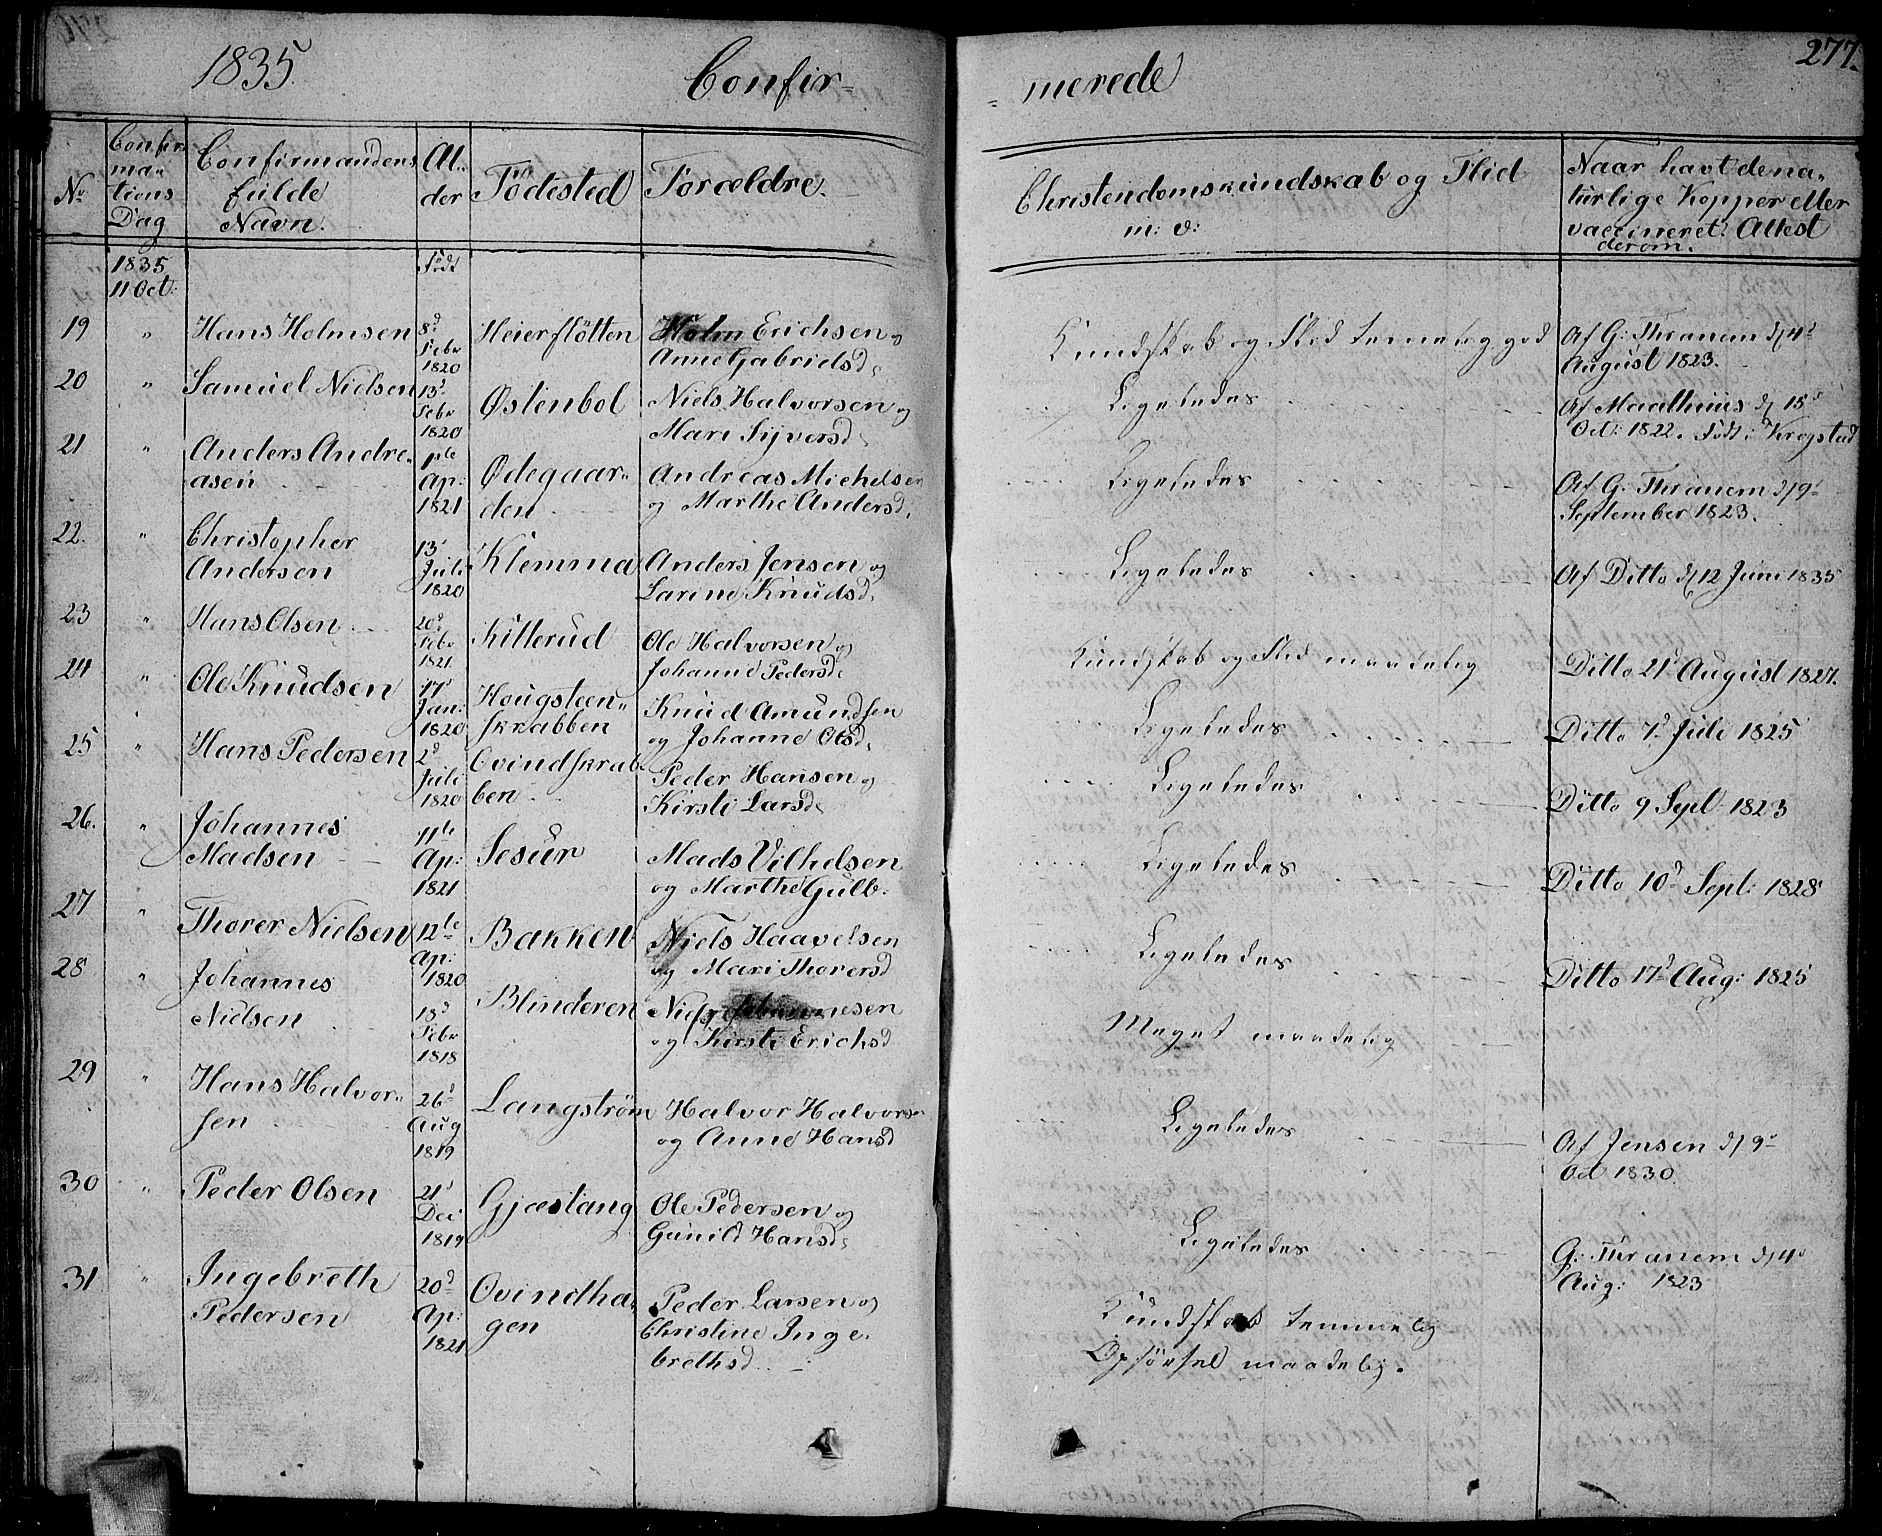 1835. Confir-
No
Confir
ma-
tions
Dag
Confirmandens
fulde
Navn.
Al-
der
Födested
Forældre.
1835
11 Oct:
Födt
19 " Hans Holmsen 8d Febr 1820 Heierflötten Holm Erichsen og
Anne Gabrielsd.
20 " Samuel Nielsen 13d Febr 1820 Østenbøl Niels Halvorsen og
Mari Syversd.
21 " Anders Andre-
asen 1ste Ap: 1821 Ødegaar-
den Andreas Michelsen
og Marthe Andersd.
22. " Christopher
Andersen 13d Juli 1820 Klemma Anders Jensen og
Larine Knudsd.
23 " Hans Olsen 20d Febr 1821 Killerud Ole Halvorsen og
Johanne Pedersd.
24 " Ole Knudsen 17d Jan: 1820 Hougsteen-
skrabben Knud Amundsen
og Johanne Olsd.
25 " Hans Pedersen 2d Juli 1820 Ovindskrab-
ben Peder Hansen og
Kirsti Larsd.
26. " Johannes
Madsen 11te Ap: 1821 Sesur Mads Vilhelsen
og Marthe Gulb.
27 " Thorer Nielsen 12te Ap: 1820 Bakken Niels Haavelsen
og Mari Thorersd
28 " Johannes
Nielsen 18d Febr 1818 Blinderen Niels Johannesen
og Kirsti Erichsd
29 " Hans Halvor-
sen 26d Aug 1819 Langström Halvor Halvorsen
og Anne Hansd
30 " Peder Olsen 21d Dec 1819 Gjæstang Ole Pedersen og
Gunild Hansd.
31 " Ingebreth
Pedersen 20d Ap: 1821 Ovindha-
gen Peder Larsen og
Christine Inge-
brethsd.
277.
- merede
Christendomskundskab og Flid
m: v:
Naar havt de na-
turlige Kopper eller
vaccineret. Attest
derom.
Kundskab og Flid temmelig god Af G: Thranem d/4d
August 1823.
Ligeledes Af Maathuis d/ 15d
Oct: 1822. Födt i Krogstad
Ligeledes Af G. Thranem d/9d
September 1823.
Ligeledes Af Ditto d/12 Juni 1835
Kundskab og Flid maadelig Ditto 21d August 1827.
Ligeledes Ditto 7d Juli 1825
Ligeledes Ditto 9 Sept 1823
Ligeledes Ditto 10d Sept: 1828
Ligeledes Ditto 17d Aug: 1825
Meget maadelig
Ligeledes Af Jensen d/9d
Oct 1830
Ligeledes G: Thranem d/4d
Aug: 1823
Kundskab temmelig
Opførsel maadelig.